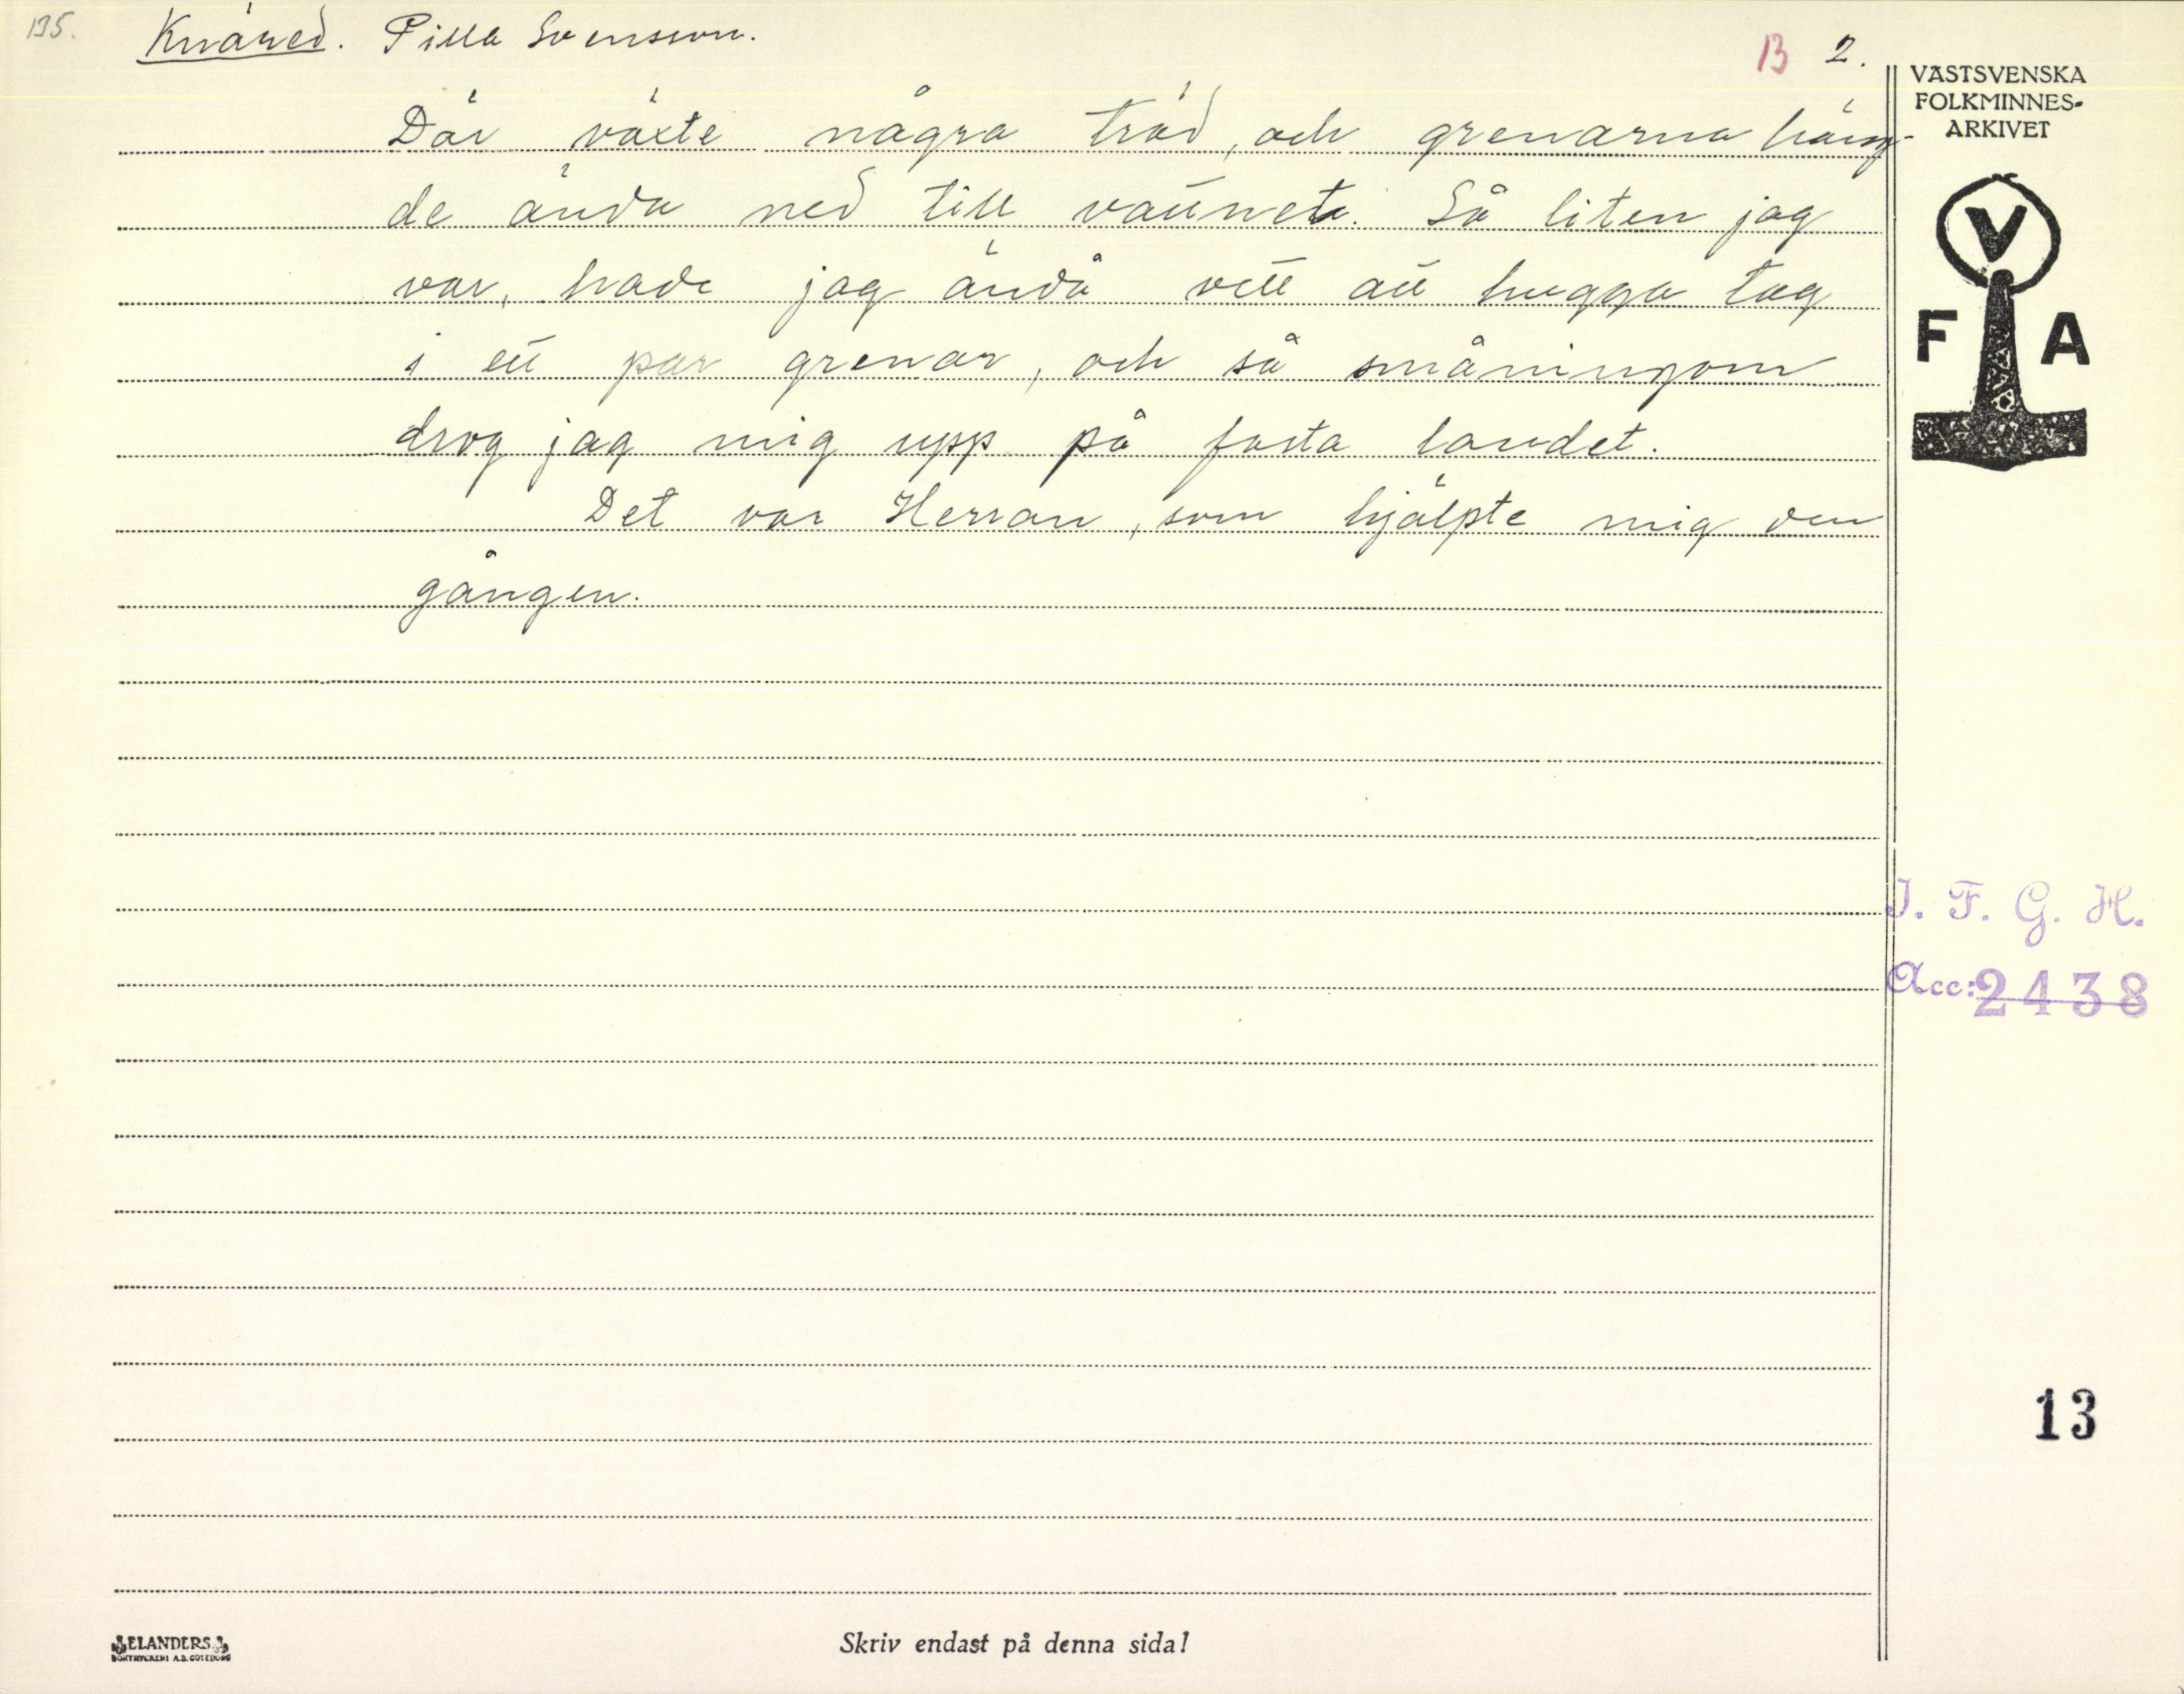 135.
Knäred. Pilla Svensson.
13 2.
VÄSTSVENSKA
FOLKMINNES-
ARKIVET
Där växte några träd, och grenarna häng-
de ända ned till vattnet. Så liten jag
var, hade jag ändå vett att hugga tag
i ett par grenar, och så småningom
drog jag mig upp på fasta landet.
Det var Herran, som hjälpte mig den
gången.
V
F A
I. F. G. H.
Acc: 2438
13
ELANDERS
BOKTRYCKERI A.B. GÖTEBORG
Skriv endast på denna sida!